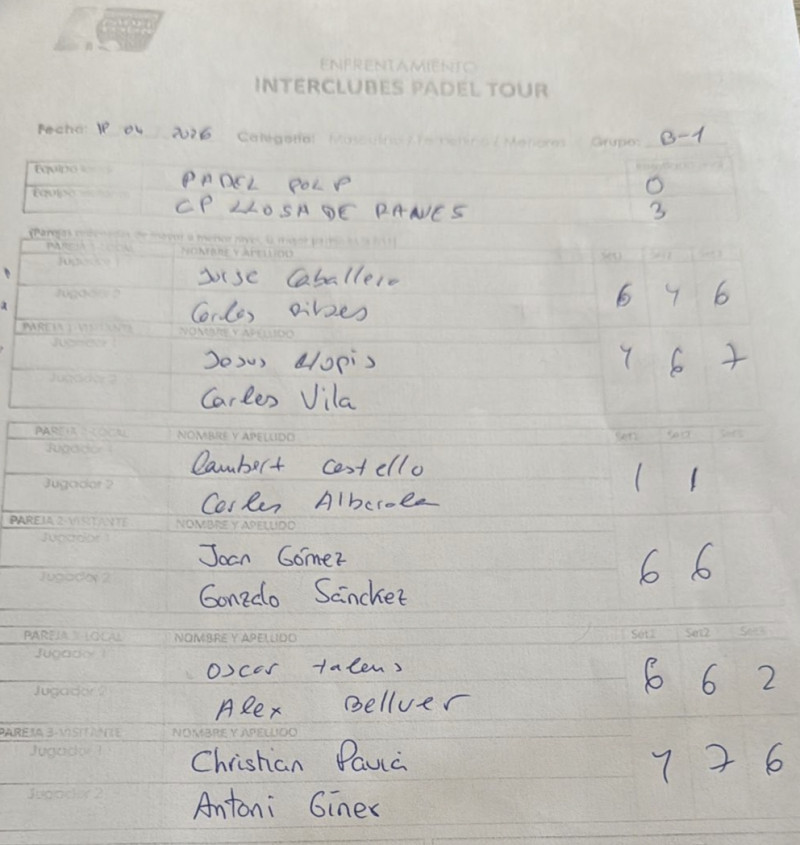 ENFRENTAMIENTO
INTERCLUBES PADEL TOUR
Fecha: 04 2026 Categoría: Masculino / Femenino / Menores Grupo: B-1
Equipo PADEL POL P 0
Equipo CP LLOSA DE RANES 3
PAREJA 1-LOCAL NOMBRE Y APELLIDO Set1 Set2 Set3
Jugador 1 Jorge Caballero
Jugador 2 Carlos 6 4 6
PAREJA 1-VISITANTE NOMBRE Y APELLIDO
Jugador 1 Josus Llopis 4 6 7
Jugador 2 Carles Vila
PAREJA 2-LOCAL NOMBRE Y APELLIDO Set1 Set2 Set3
Jugador 1 Lambert Castello 1 1
Jugador 2 Carles Alberola
PAREJA 2-VISITANTE NOMBRE Y APELLIDO
Jugador 1 Joan Gómez 6 6
Jugador 2 Gonzalo Sánchez
PAREJA 3-LOCAL NOMBRE Y APELLIDO Set1 Set2 Set3
Jugador 1 Oscar talens 6 6 2
Jugador 2 Alex Bellver
PAREJA 3-VISITANTE NOMBRE Y APELLIDO
Jugador 1 Christian Pavía 4 7 6
Jugador 2 Antoni Giner